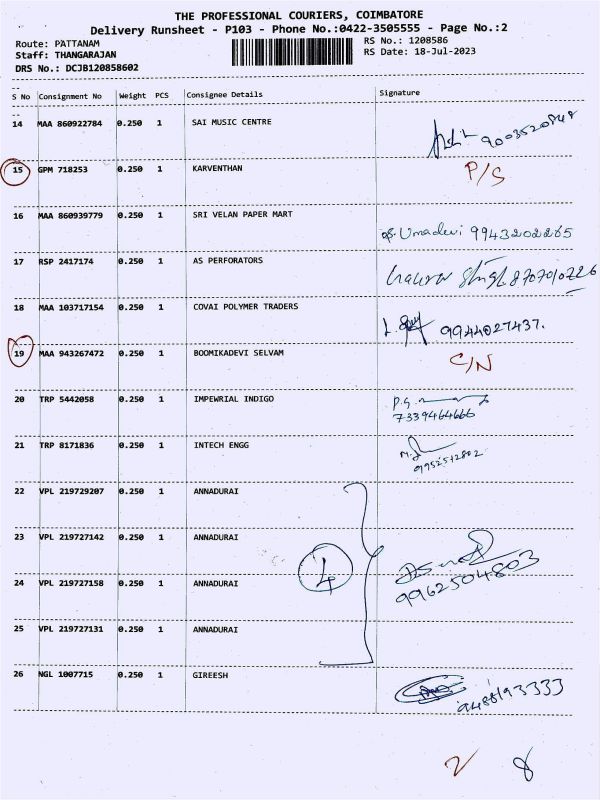 THE PROFESSIONAL COURIERS, COIMBATORE
Delivery Runsheet - P103 - Phone No.:0422-3505555 - Page No.:2
Route: PATTANAM RS No.: 1208586
Staff: THANGARAJAN RS Date: 18-Jul-2023
DRS No.: DCJB120858602
S No Consignment No Weight PCS Consignee Details Signature
14 MAA 860922784 0.250 1 SAI MUSIC CENTRE 9003520848
15 GPM 718253 0.250 1 KARVENTHAN P/S
16 MAA 860939779 0.250 1 SRI VELAN PAPER MART Umadevi 9943202265
17 RSP 2417174 0.250 1 AS PERFORATORS 8707010226
18 MAA 103717154 0.250 1 COVAI POLYMER TRADERS 9944027437.
19 MAA 943267472 0.250 1 BOOMIKADEVI SELVAM C/N
20 TRP 5442058 0.250 1 IMPEWRIAL INDIGO P.G.
7339464666
21 TRP 8171836 0.250 1 INTECH ENGG 9952512802
22 VPL 219729207 0.250 1 ANNADURAI
23 VPL 219727142 0.250 1 ANNADURAI
4
24 VPL 219727158 0.250 1 ANNADURAI 9962504803
25 VPL 219727131 0.250 1 ANNADURAI
26 NGL 1007715 0.250 1 GIREESH 9488193333
2 8